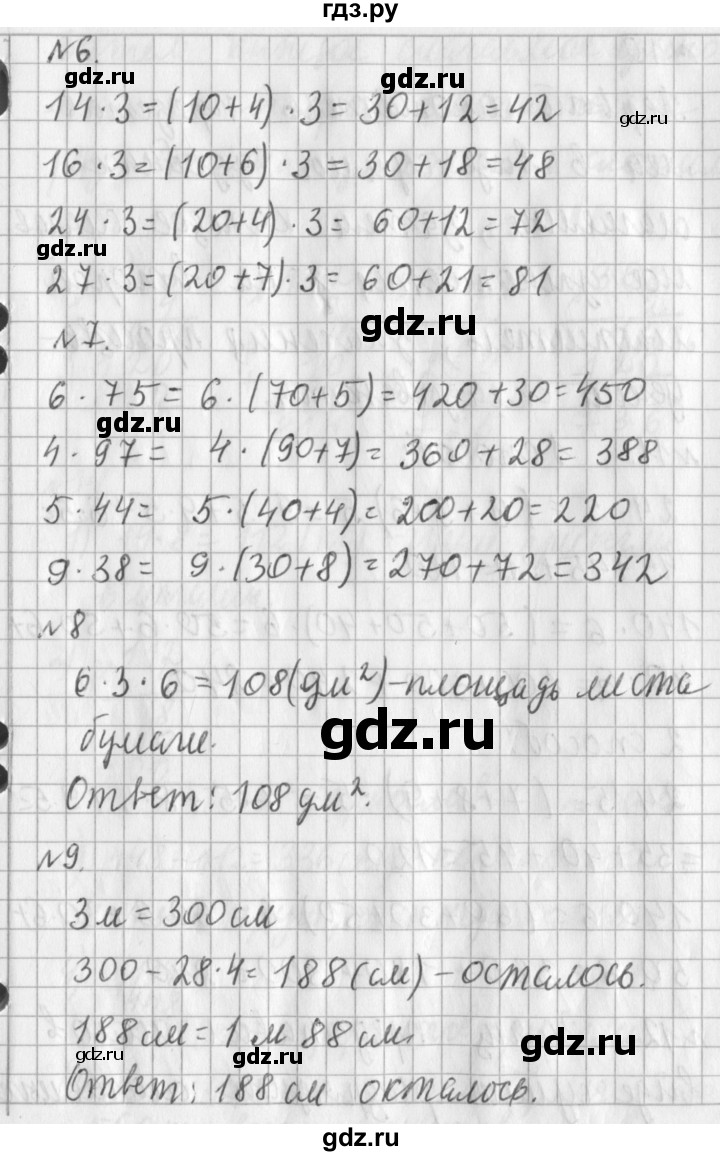 гдз.ру
№6.
gdz.ru
gdz.ru
14·3=(10+4)·3=30+12=42
gdz.ru
16·3=(10+6)·3=30+18=48
24·3=(20+4)·3= 60+12=72
gdz.ru
27·3=(20+7)·3= 60+21=81
gdz.ru
№7.
6·75= 6·(70+5)=420+30=450
gdz.ru
4·97= 4·(90+7)=360+28=388
5·44= 5·(40+4)=200+20=220
9·38= 9·(30+8)=270+72=342
№8
6·3·6=108(дм²)-площадь листа
gdz.ru
бумаги.
Ответ: 108 дм².
№9.
3м=300см
300-28·4=188(см)-осталось.
188см=1 м 88 см.
gdz.ru
gdz.ru
gdz.ru
Ответ: 188 см окталось.
gdz.ru